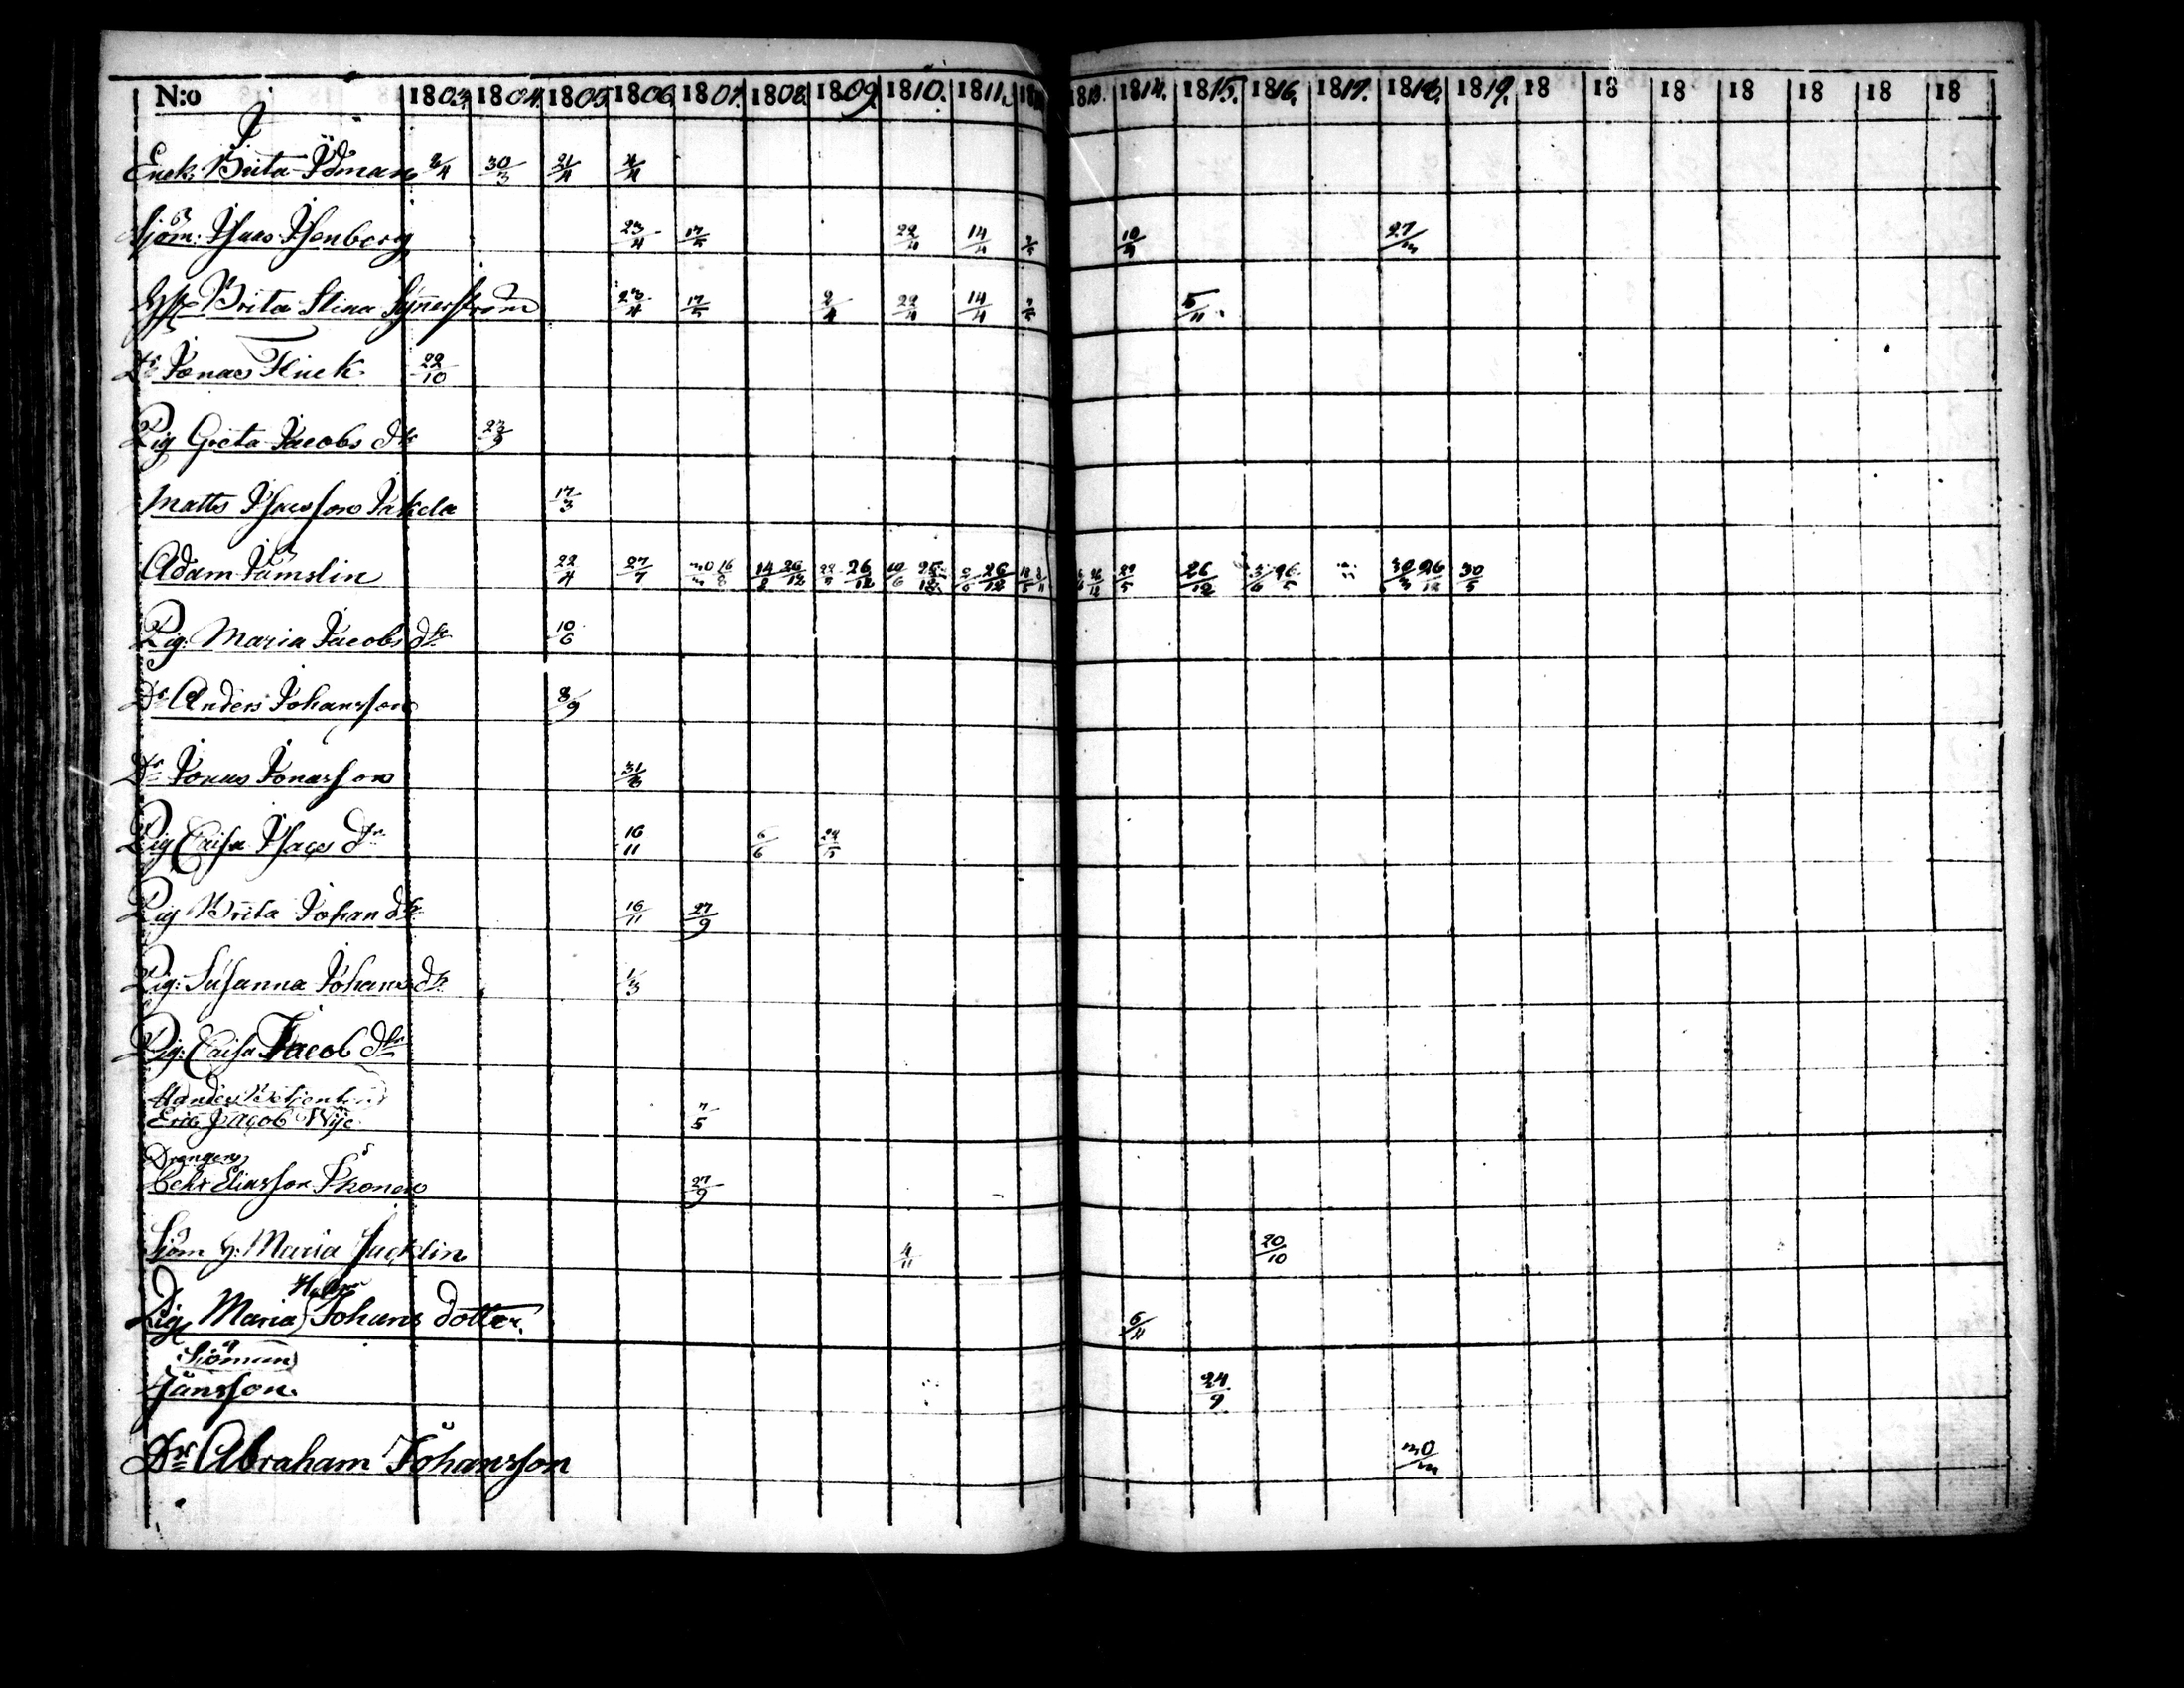 N:o 1803. 1804. 1805 1806. 1807. 1808. 1809. 1810. 1811. 18 1813. 1814. 1815. 1816. 1817. 1818. 1819. 18 18 18 18 18 18 18
J
Enk. Brita Ödman 30/3 21/4
Sjöm: Isaac Isenberg 23/4 17/5 22/4 14/4 27/3
Brita Stina 23/4 17/5 2/4 22/4 14/4 5/11
Dr Jonas Flinck 22/10
Pig Greta Jacobs dr 23/9
Matts Isacsson Jakola 17/3
Adam Jämslin 22/4 27/7 30/3 16/8 14/8 26/12 26/12 19/6 25/12 26/12 26/12 29/5 26/12 3/6 26/5 30/3 26/12 30/5
Pig. Maria Jacobs dr 10/6
Dr Anders Johansson 8/9
Dr Jonas Jonasson 31/3
Pig Caisa Isacs dr 16/11 6/6 24/5
Pig Brita Johan dr 16/11 27/9
Pig: Susanna Johans dr 1/3
Pig: Caisa Jacob dr
Eric Jacob Wijc 7/5
Drengen
Eliasson 27/9
Sjöm h: Maria Jacklin 4/11 20/10
Holm
Pig Maria Johans dotter. 6/11
Sjöman
Jansson. 24/9
Dr Abraham Johansson 30/3